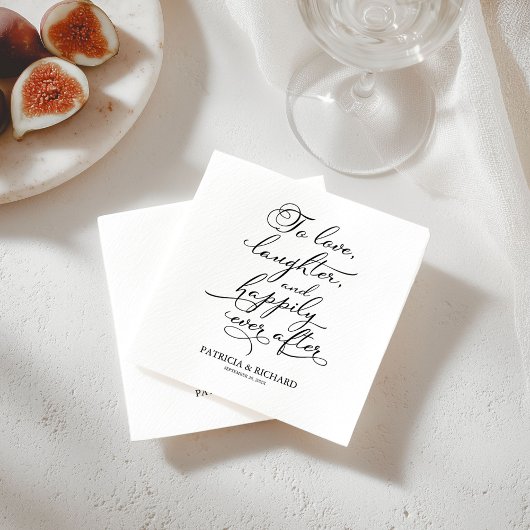 To love,
laughter,
and
happily
ever after
PATRICIA & RICHARD
SEPTEMBER 26, 20XX
PA